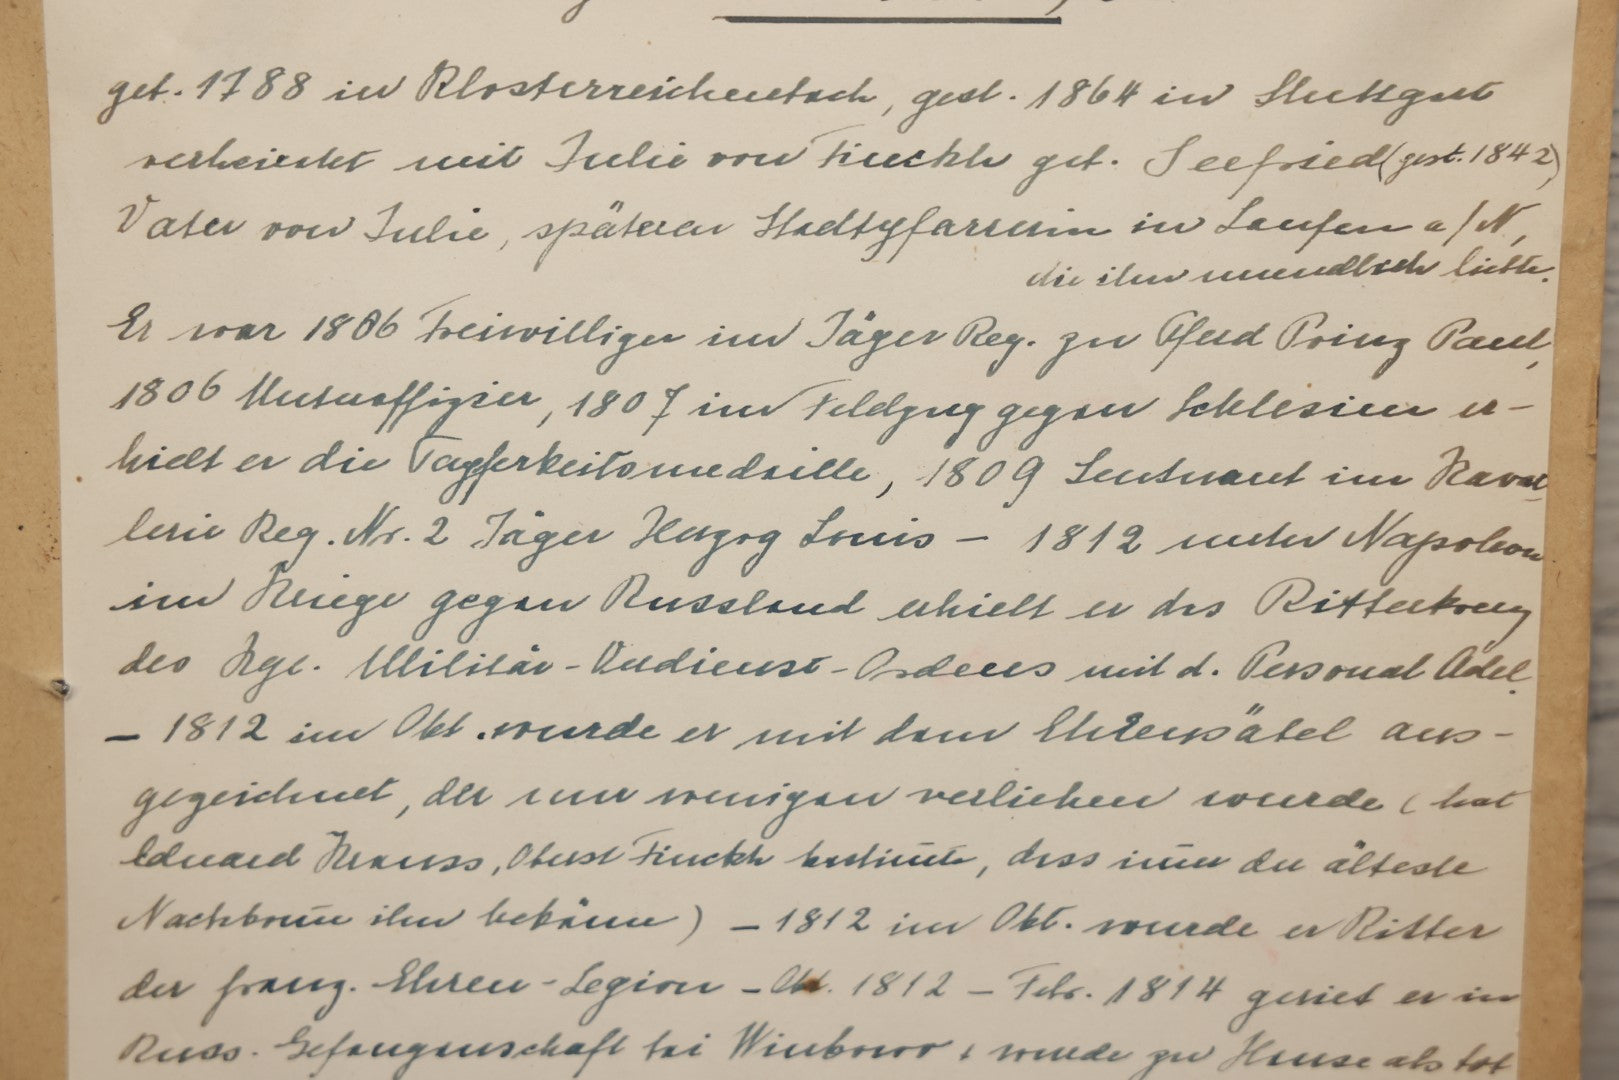 geb. 1788 in Klosterreichenbach, gest. 1864 in Stuttgart
verheiratet mit Julie von Finckh geb. Seefried (gest. 1842),
Vater von Julie, späteren Stadtpfarrerin in Laufen a/N,
die ihn unendlich liebte.
Er war 1806 Freiwilliger im Jäger Reg. zu Pferd Prinz Paul,
1806 Unteroffizier, 1807 im Feldzug gegen Schlesien er-
hielt er die Tapferkeitsmedaille, 1809 Leutnant im Kaval-
lerie Reg. Nr. 2 Jäger Herzog Louis – 1812 unter Napoleon
im Kriege gegen Russland erhielt er das Ritterkreuz
des Kgl. Militär-Verdienst-Ordens mit d. Personal Adel.
– 1812 im Okt. wurde er mit dem Ehrensäbel aus-
gezeichnet, der nur wenigen verliehen wurde (hat
Eduard Krauss, Oberst Finckh bestimmte, dass immer der älteste
Nachkomme ihn bekäme) – 1812 im Okt. wurde er Ritter
der franz. Ehren-Legion – Okt. 1812 – Febr. 1814 geriet er in
Russ. Gefangenschaft bei Winkowo & wurde zu Hause als tot